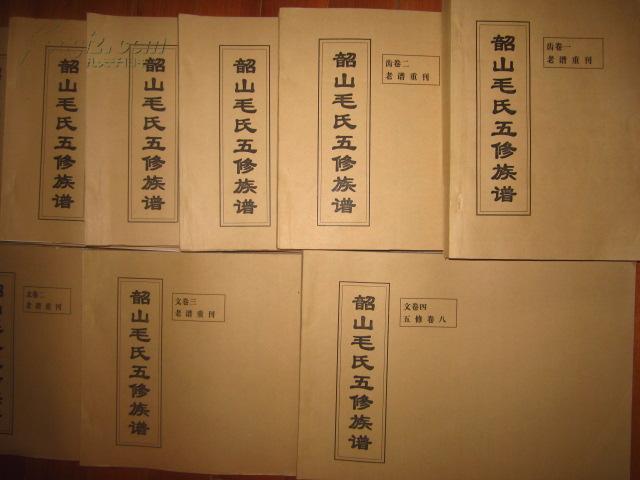 韶山毛氏五修族谱
韶山毛氏五修族谱
韶山毛氏五修族谱
韶山毛氏五修族谱
齿卷二
老谱重刊
韶山毛氏五修族谱
齿卷一
老谱重刊
文卷二
老谱重刊
韶山毛氏五修族谱
文卷三
老谱重刊
韶山毛氏五修族谱
文卷四
五修卷八